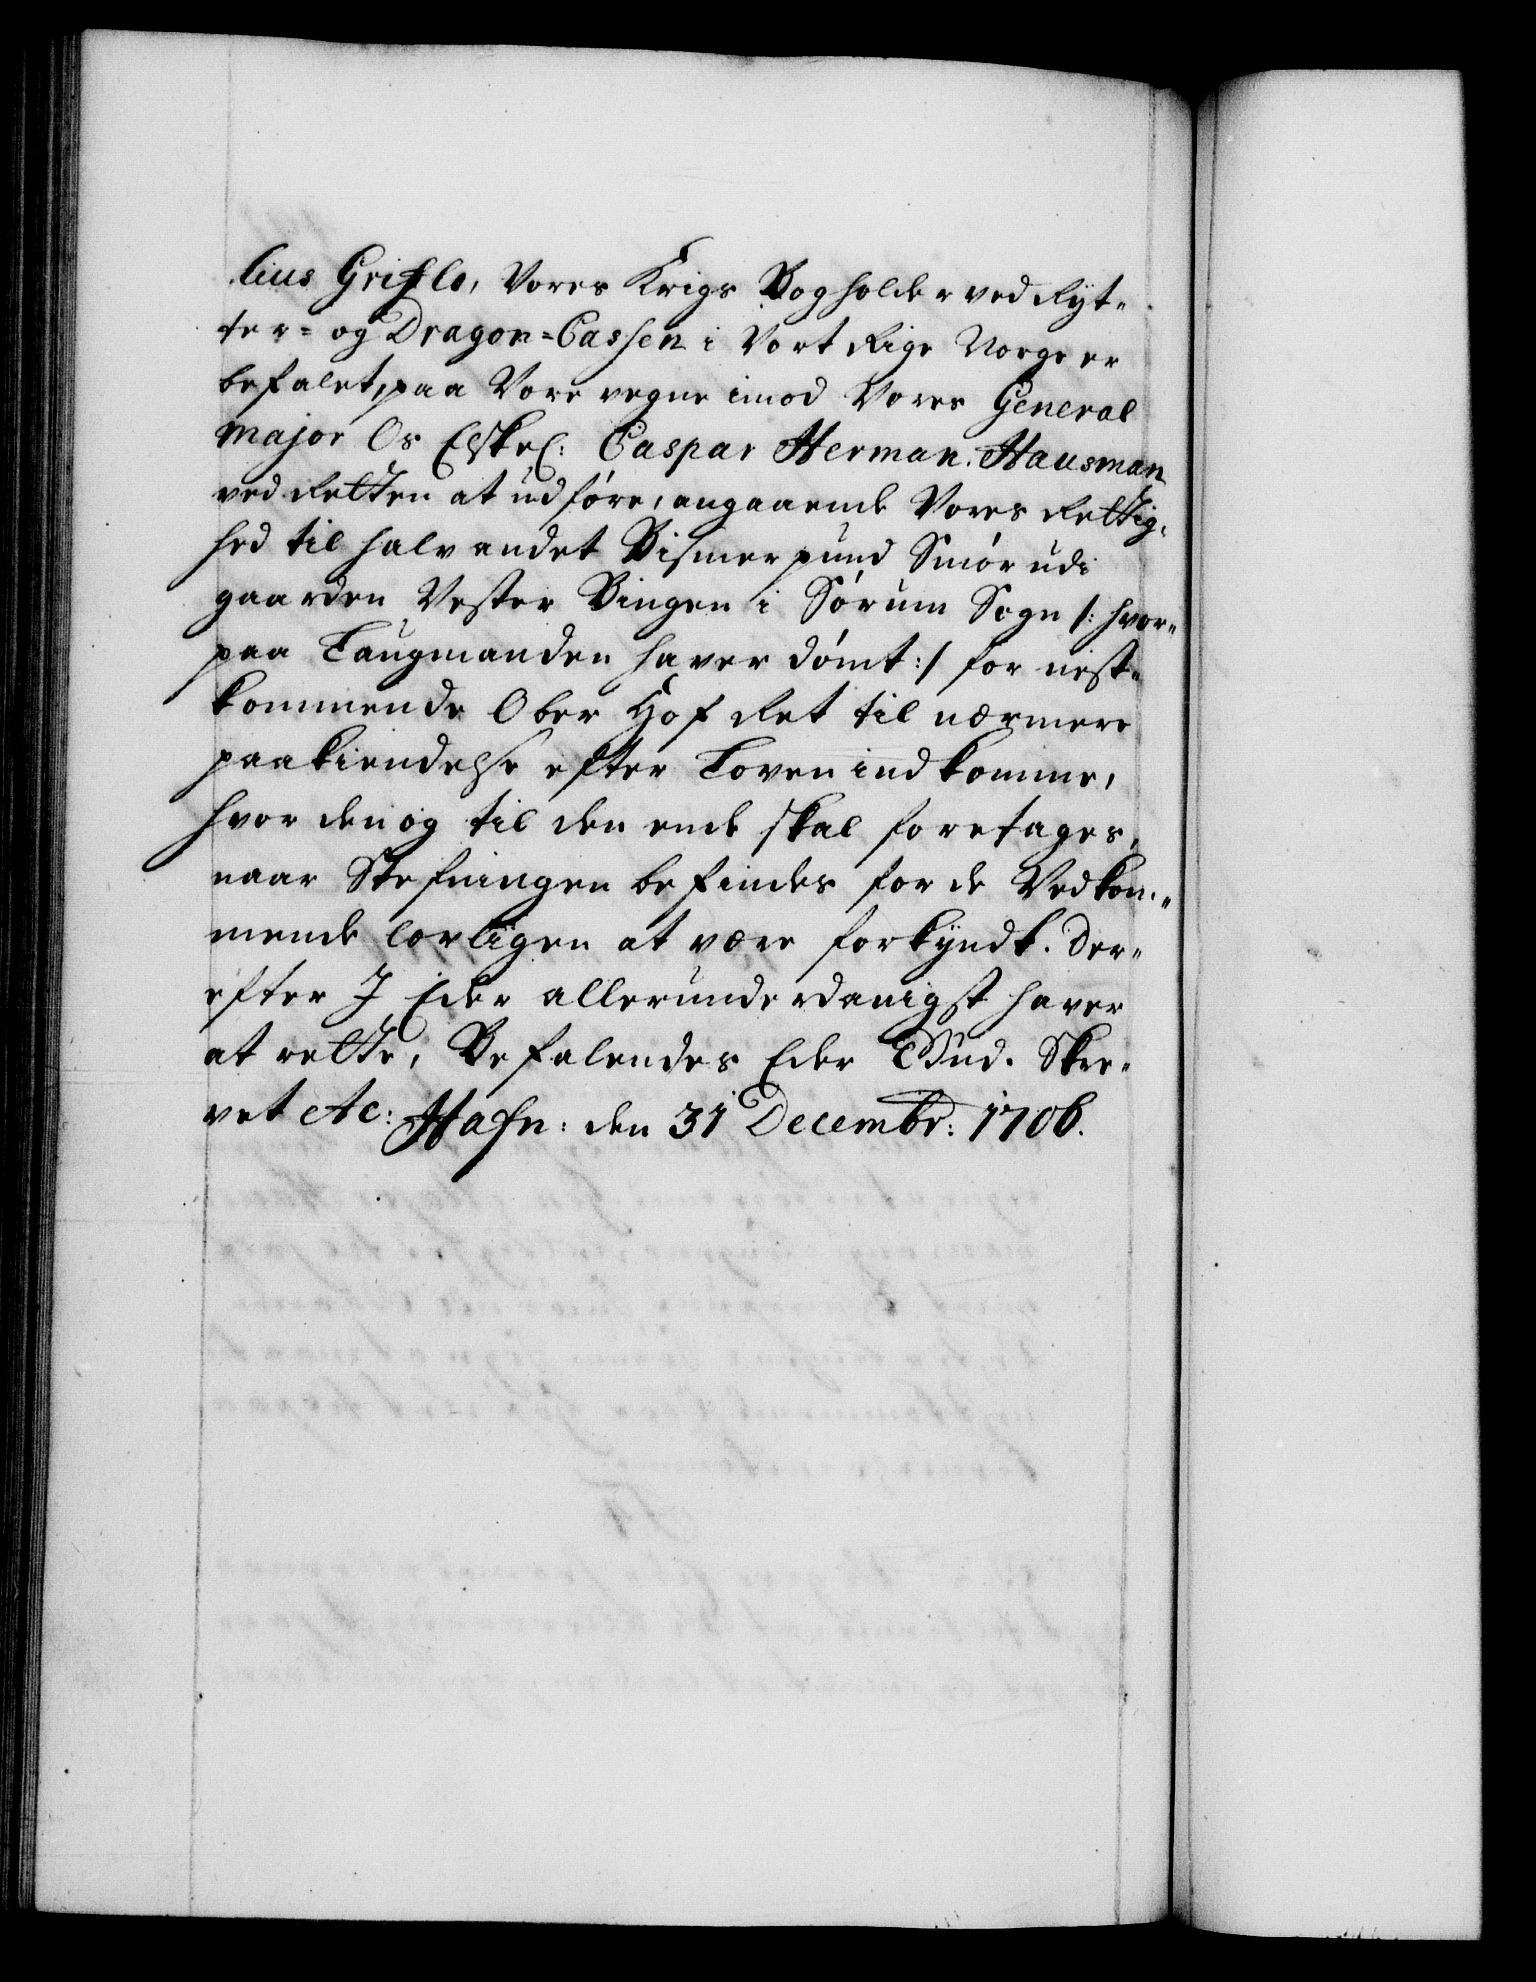 lius Grifle, Vores Krigs Bogholder ved Ryt-
ter- og Dragon-Cassen i Vort Rige Norge er
befalet, paa Vore vegne imod Vores General
Major Os Elskel: Caspar Herman Hausman
ved Retten at udføre, angaaende Vores Rettig-
hed til halv andet Bismerpund Smør udi
gaarden Vester Bingen i Sørum Sogn /: hvor-
paa Laugmanden haver dømt :/ for nest-
kommende Ober Hof Ret til nærmere
paakiendelse efter Loven indkomme,
hvor den og til den ende skal foretages,
naar Stefningen befindes for de Vedkom-
mende lovligen at være forkyndt. Der-
efter I Eder allerunderdanigst haver
at rette, Befalendes Eder Gud. Skre-
vet etc: Hafn: den 31 Decembr: 1706.